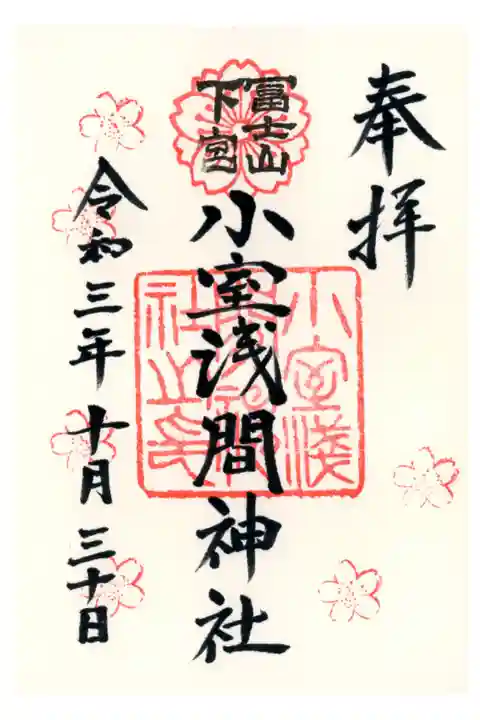 奉拝
冨士山
下宮
小室浅間神社
小室浅
間神社
社之印
令和三年十月三十日